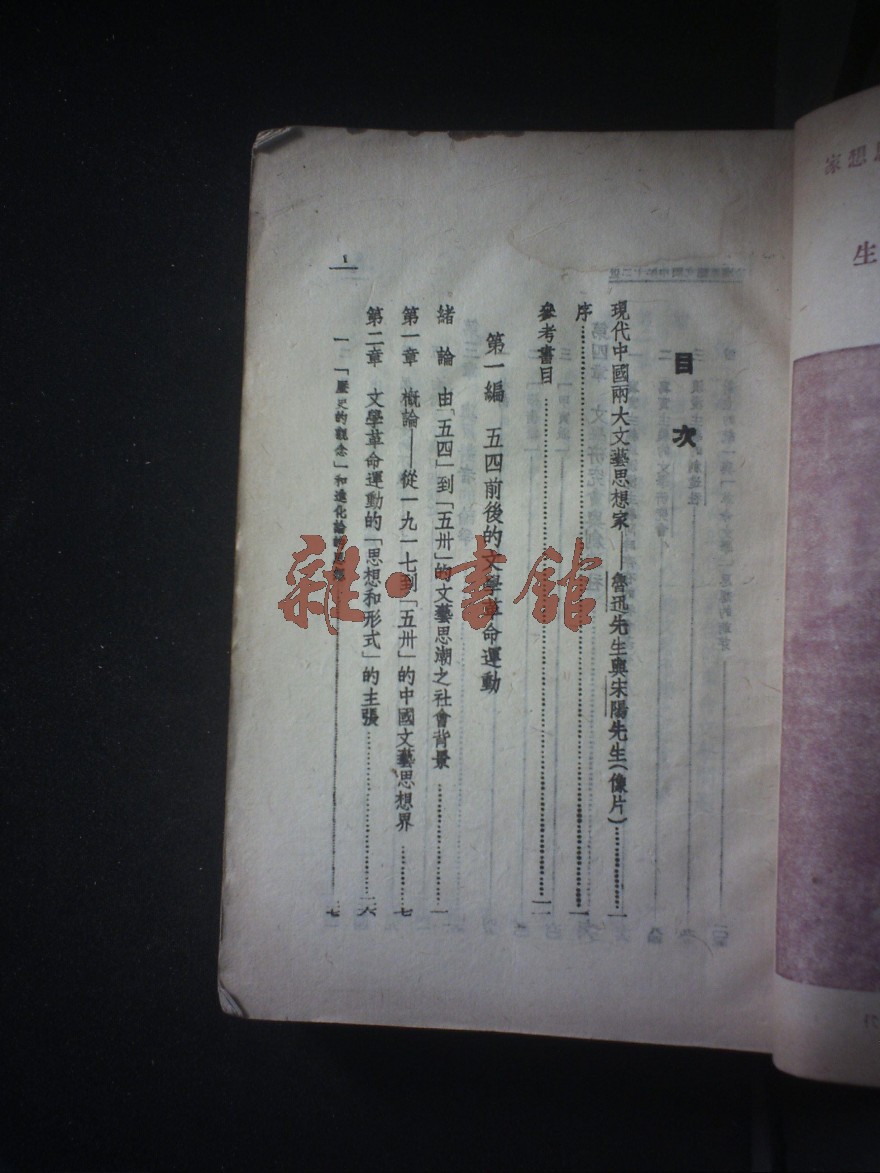 目次
現代中國兩大文藝思想家——魯迅先生與宋陽先生(像片)…………一
序…………一
參考書目…………一二
第一編 五四前後的文學革命運動
緒論 由「五四」到「五卅」的文藝思潮之社會背景…………一
第一章 概論——從一九一七到「五卅」的中國文藝思想界…………七
第二章 文學革命運動的「思想和形式」的主張…………二六
一 「歷史的觀念」和進化論的思想…………二七
1
雜·書館
想家
生